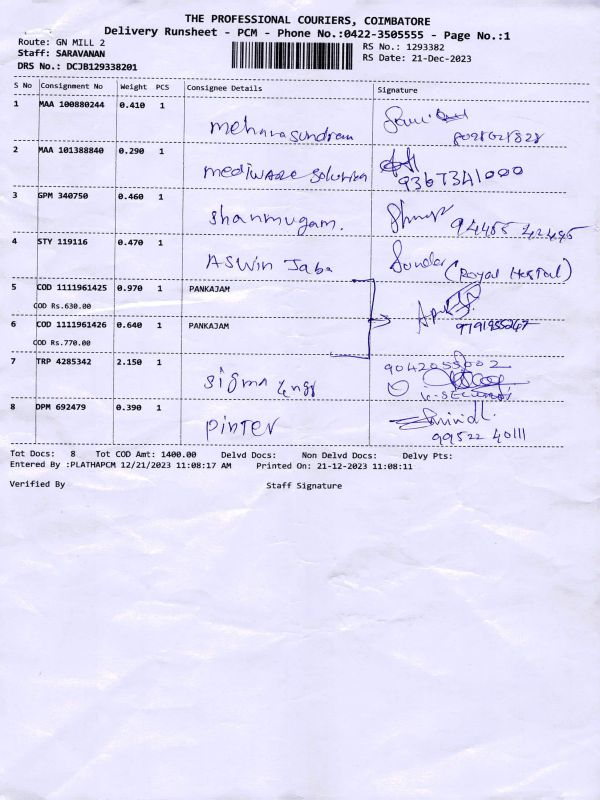 THE PROFESSIONAL COURIERS, COIMBATORE
Delivery Runsheet - PCM - Phone No.:0422-3505555 - Page No.:1
Route: GN MILL 2
RS No.: 1293382
Staff: SARAVANAN
RS Date: 21-Dec-2023
DRS No.: DCJB129338201
S No Consignment No Weight PCS Consignee Details Signature
1 MAA 100880244 0.410 1
mehara sundram
2 MAA 101388840 0.290 1
mediware solution
9367341000
3 GPM 340750 0.460 1
Shanmugam.
94455 42495
4 STY 119116 0.470 1
ASwin Jaba Sundar (Royal Hostal)
5 COD 1111961425 0.970 1 PANKAJAM
COD Rs.630.00
6 COD 1111961426 0.640 1 PANKAJAM
9791955267
COD Rs.770.00
7 TRP 4285342 2.150 1 9042055002
Sigma Engg
8 DPM 692479 0.390 1
Pinter
99522 40111
Tot Docs: 8 Tot COD Amt: 1400.00 Delvd Docs: Non Delvd Docs: Delvy Pts:
Entered By :PLATHAPCM 12/21/2023 11:08:17 AM Printed On: 21-12-2023 11:08:11
Verified By Staff Signature